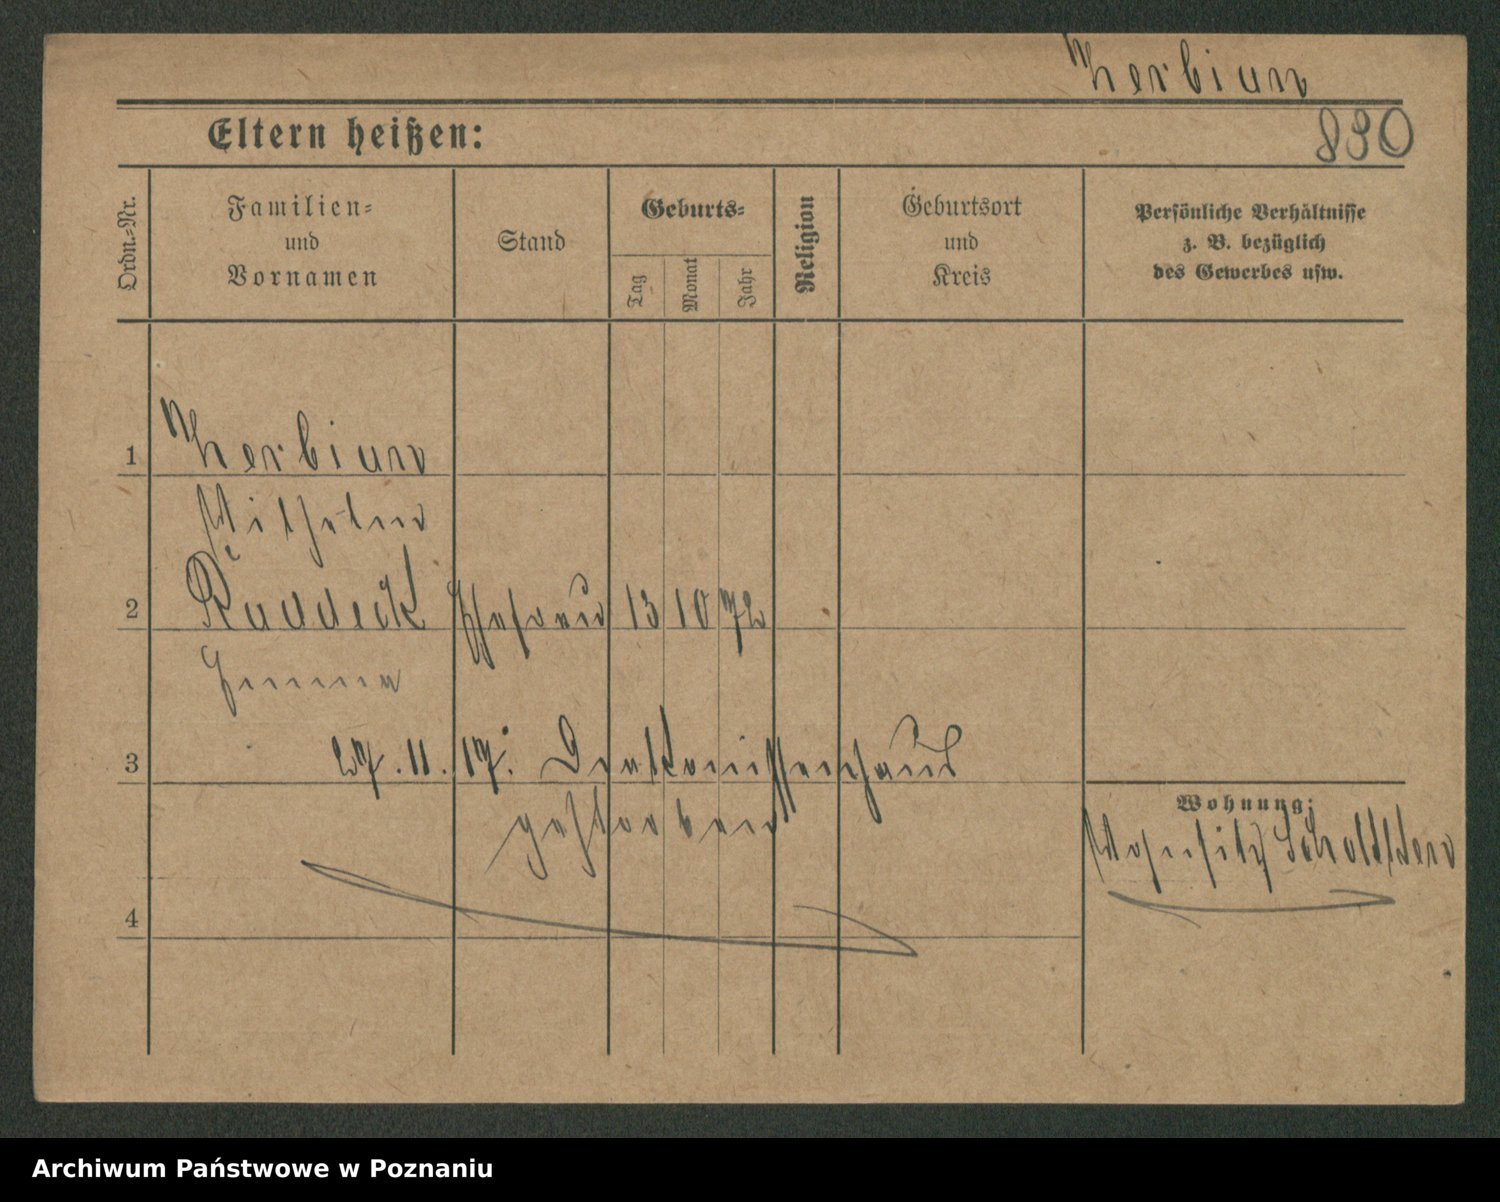 Zerbian
Eltern heißen:
830
Ordn.-Nr.
Familien-
und
Vornamen
Stand
Geburts-
Tag
Monat
Jahr
Religion
Geburtsort
und
Kreis
Persönliche Verhältnisse
z. B. bezüglich
des Gewerbes usw.
1
Zerbian
Wilhelm
2
Ruddeck Ehefrau 13 10 72
Emma
3
27. 11. 17. Diakonissenhaus
gestorben
Wohnung:
Wohnsitz
4
Archiwum Państwowe w Poznaniu